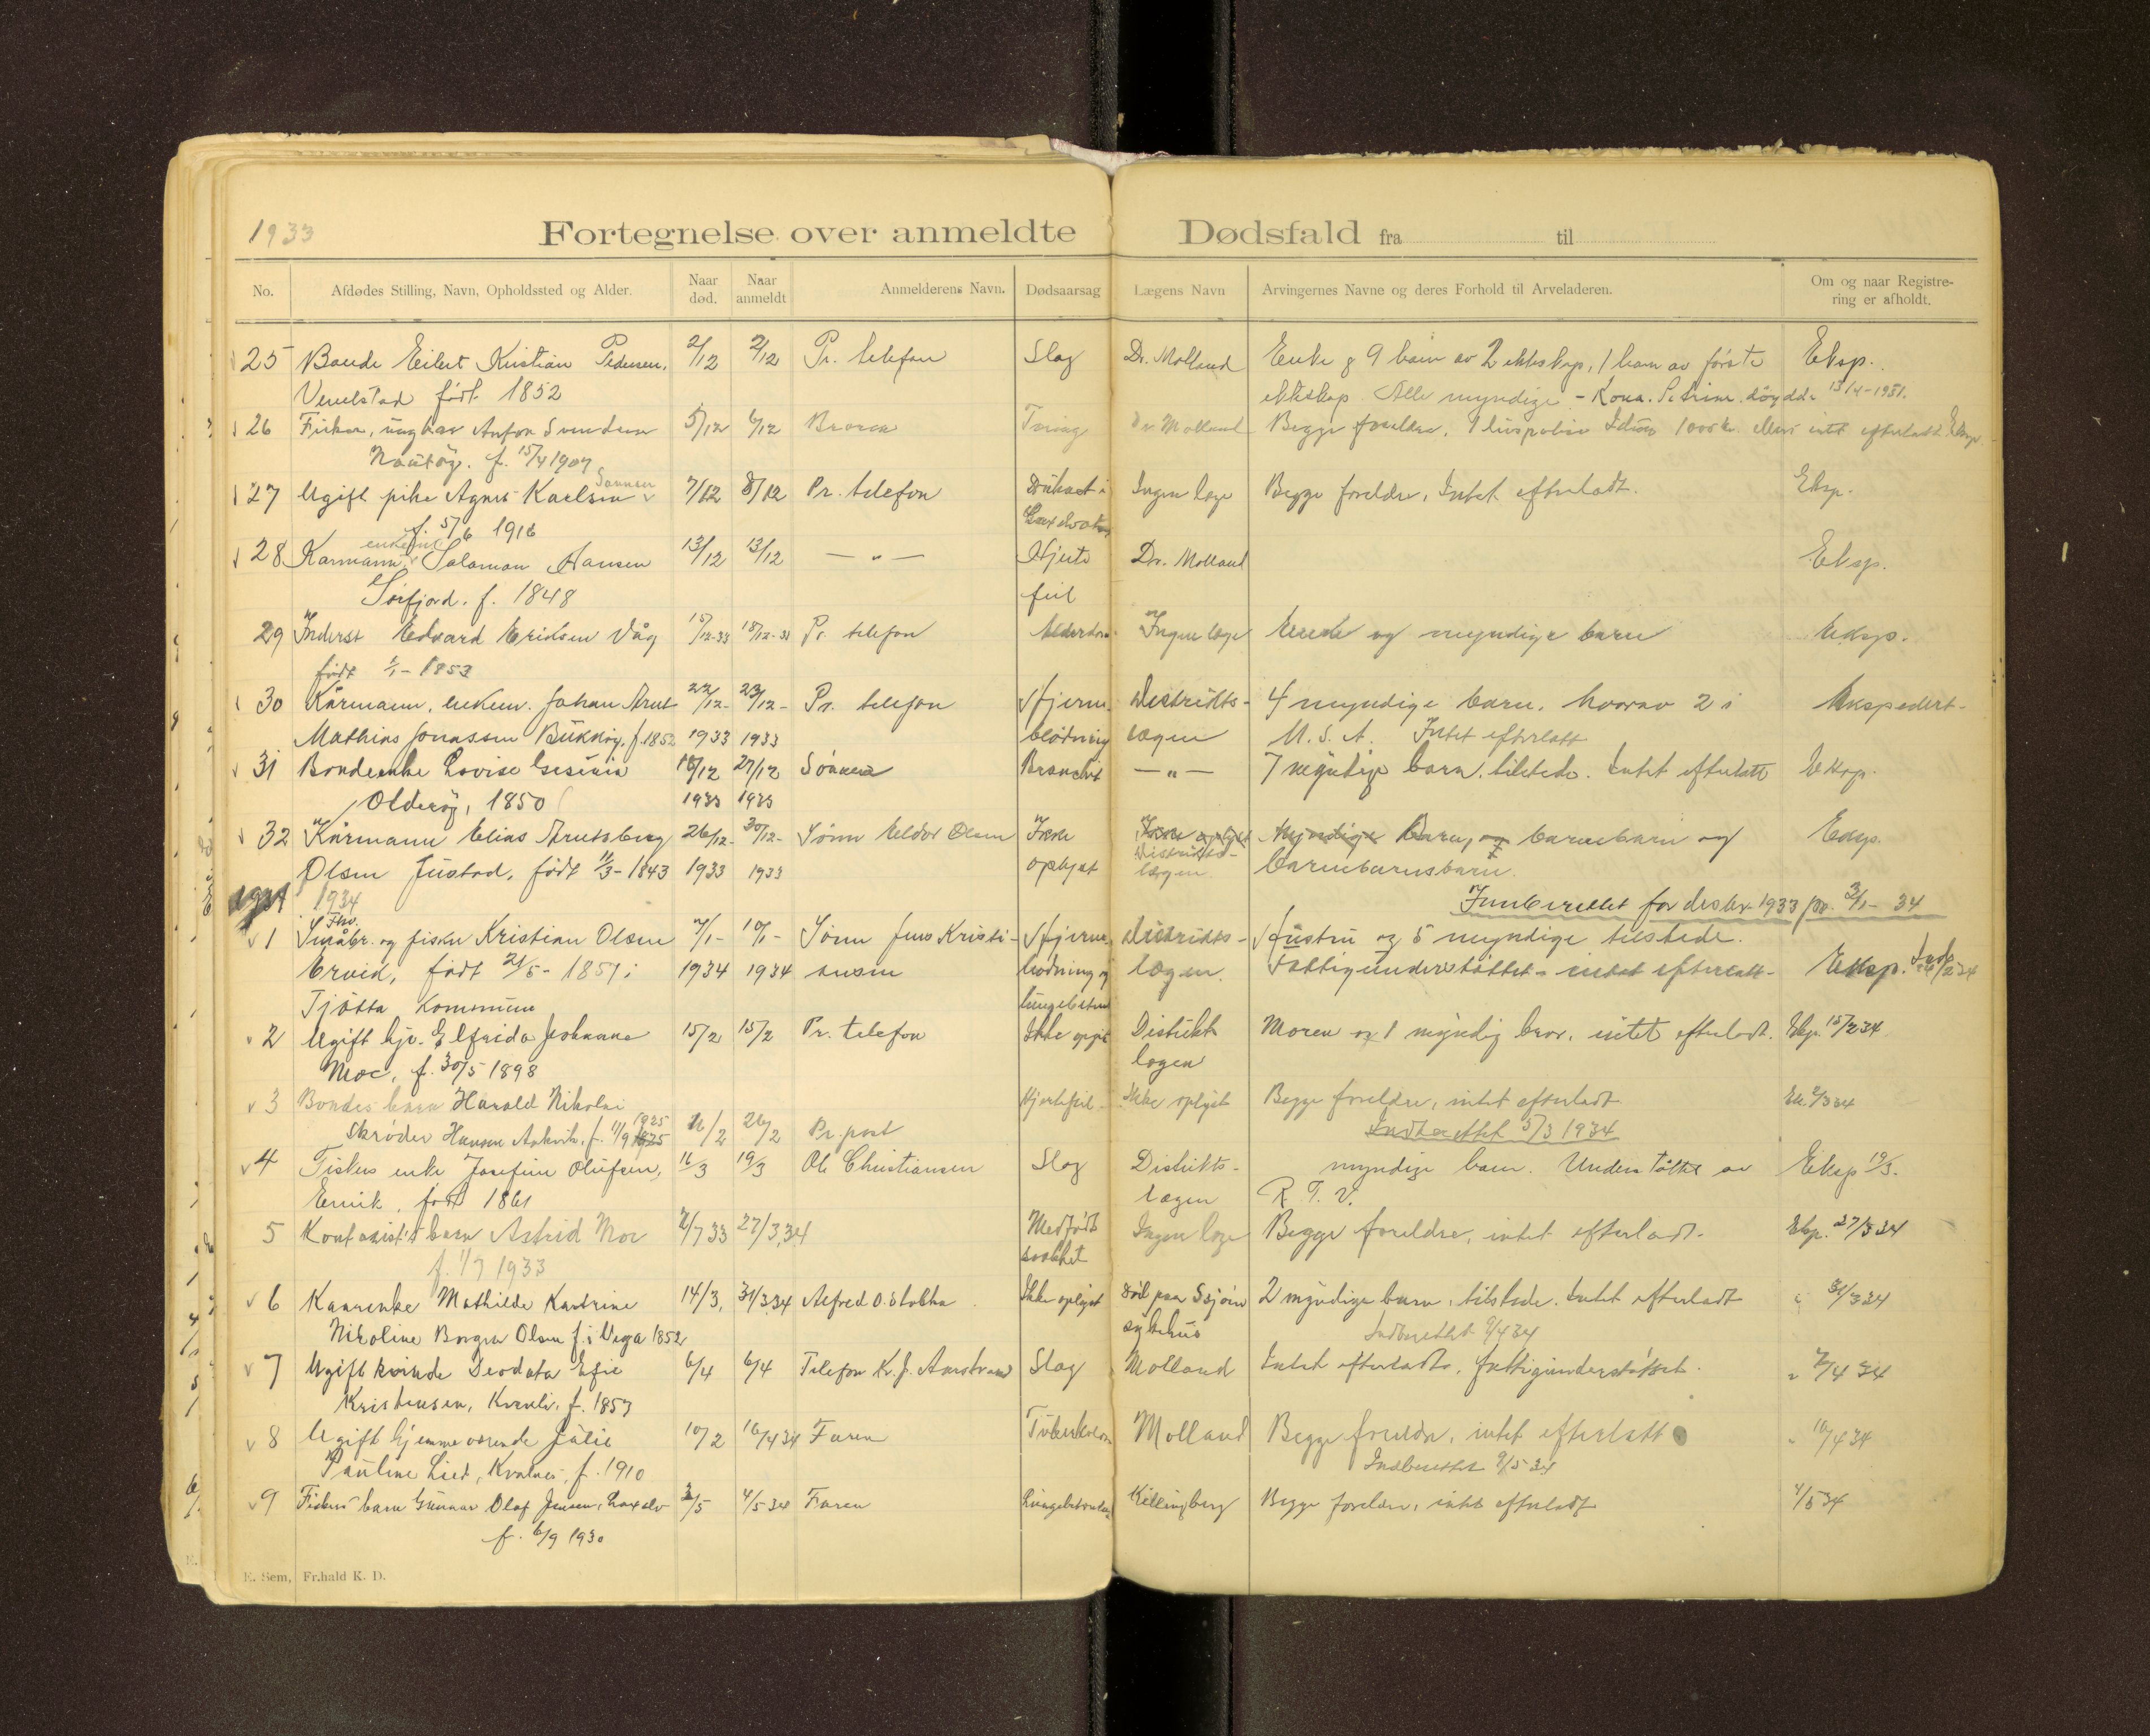 1933
Fortegnelse over anmeldte Dødsfald fra til
No. Afdødes Stilling, Navn, Opholdssted og Alder. Naar død. Naar anmeldt Anmelderens Navn. Dødsaarsag Lægens Navn Arvingernes Navne og deres Forhold til Arveladeren. Om og naar Registrering er afholdt.
25 Bonde Eilert Kristian Pedersen, 2/12 2/12 Pr. telefon Slag Dr. Molland Enke & 9 barn av 2 ekteskap, 1 barn av første Eksp.
født 1852 ekteskap. Alle myndige - Kona døydde 13/4-1951.
26 Fisker, ungkar Anton Svendsen 5/12 6/12 Broren Dr Molland Begge foreldre, 1 livspolise 1000 kr. intet efterladt Eksp.
f. 15/4 1907
27 Ugift pike Agnes Karlsen 7/12 8/12 Pr. telefon Druknet i Ingen læge Begge foreldre, Intet efterladt. Eksp.
f. 5/6 1916
28 Kaarmann Salamon Hansen 13/12 13/12 — " — Hjerte Dr. Molland Eksp.
Sørfjord. f. 1848 feil
29 Inderst Edvard Eriksen Våg 15/12-33 18/12-33 Pr. telefon Ingen læge Enke og myndige barn Eksp.
født 1/1-1853
30 Kårmann, enkem. Johan Arnt 22/12- 23/12- Pr. telefon Hjerne- Distrikts- 4 myndige barn, hvorav 2 i Ekspedert-
Mathias Jonassen f. 1852 1933 1933 blødning lægen U.S.A. Intet efterlatt
31 Bondeenke Lovise Gesinia 16/12 27/12 Sønnen Bronchit — " — 7 myndige barn, tilstede. Intet efterlatt Eksp.
Olderøy, 1850 1933 1933
32 Kårmann Elias Arntsberg 26/12- 30/12- Sønn Eldor Olsen Ikke Ikke oplyst Myndige Barn, og barnebarn og Eksp.
Olsen Justad, født 11/3-1843 1933 1933 oplyst Distrikts-lægen. barnebarnsbarn.
1934 1934 Innberettet for desbr. 1933 pr. 3/1-34
1 Småbr. og fisker Kristian Olsen 7/1- 10/1- Sønn Jens Kristi- Hjerne- Distrikts- Hustru og 5 myndige tilstede.
Ervik, født 21/5-1851 i 1934 1934 ansen blødning og lægen. Fattigunderstøttet - intet efterlatt - Eksp.
Tjøtta Kommune
2 Ugift hjv. Elfrida Johanna 15/2 15/2 Pr. telefon Ikke oppl. Distrikt Moren og 1 myndig bror, intet efterladt. Eksp. 15/2 34
Moe, f. 30/5 1898 lægen
3 Bondes barn Harald Nikolai Hjertefeil Ikke oplyst Begge foreldre, intet efterladt
Skrøder Hansen f. 11/9 1925 26/2 Pr. post Indberettet 5/3 1934
4 Fiskers enke Josefine Olufsen, 16/3 19/3 Ole Christiansen Slag Distrikts- myndige barn. Understøttet av Eksp 19/3.
født 1861 lægen R. T. V.
5 barn Astrid Moe 2/7 33 27/3,34 Medfødt Ingen læge Begge foreldre, intet efterladt. Eksp. 27/3 34
f. 1/7 1933 svakhet
6 Kaarenke Mathilde Kartrine 14/3, 31/3,34 Alfred O. Stokka Ikke oplyst Død paa Ssjøen 2 myndige barn, tilstede. Intet efterladt " 31/3 34
Nikoline Borgen Olsen f. i Vega 1852 sykehus Indberettet 9/4 34
7 Ugift kvinde Deodata Efie 6/4 6/4 Telefon Kr. J. Slag Molland Intet efterladt, fattigunderstøttet. " 7/4 34
Kristensen, f. 1857
8 Ugift hjemmeværende Julie 10/2 16/4 34 Faren Molland Begge foreldre, intet efterlatt " 16/4 34
Pauline Lied, Kvalnes, f. 1910 Indberettet 9/5 34
9 Fiskers barn Gunnar Olaf Jensen, 3/5 4/5 34 Faren Killingberg Begge foreldre, intet efterladt 4/5 34
f. 6/9 1930
E. Sem, Fr.hald K. D.